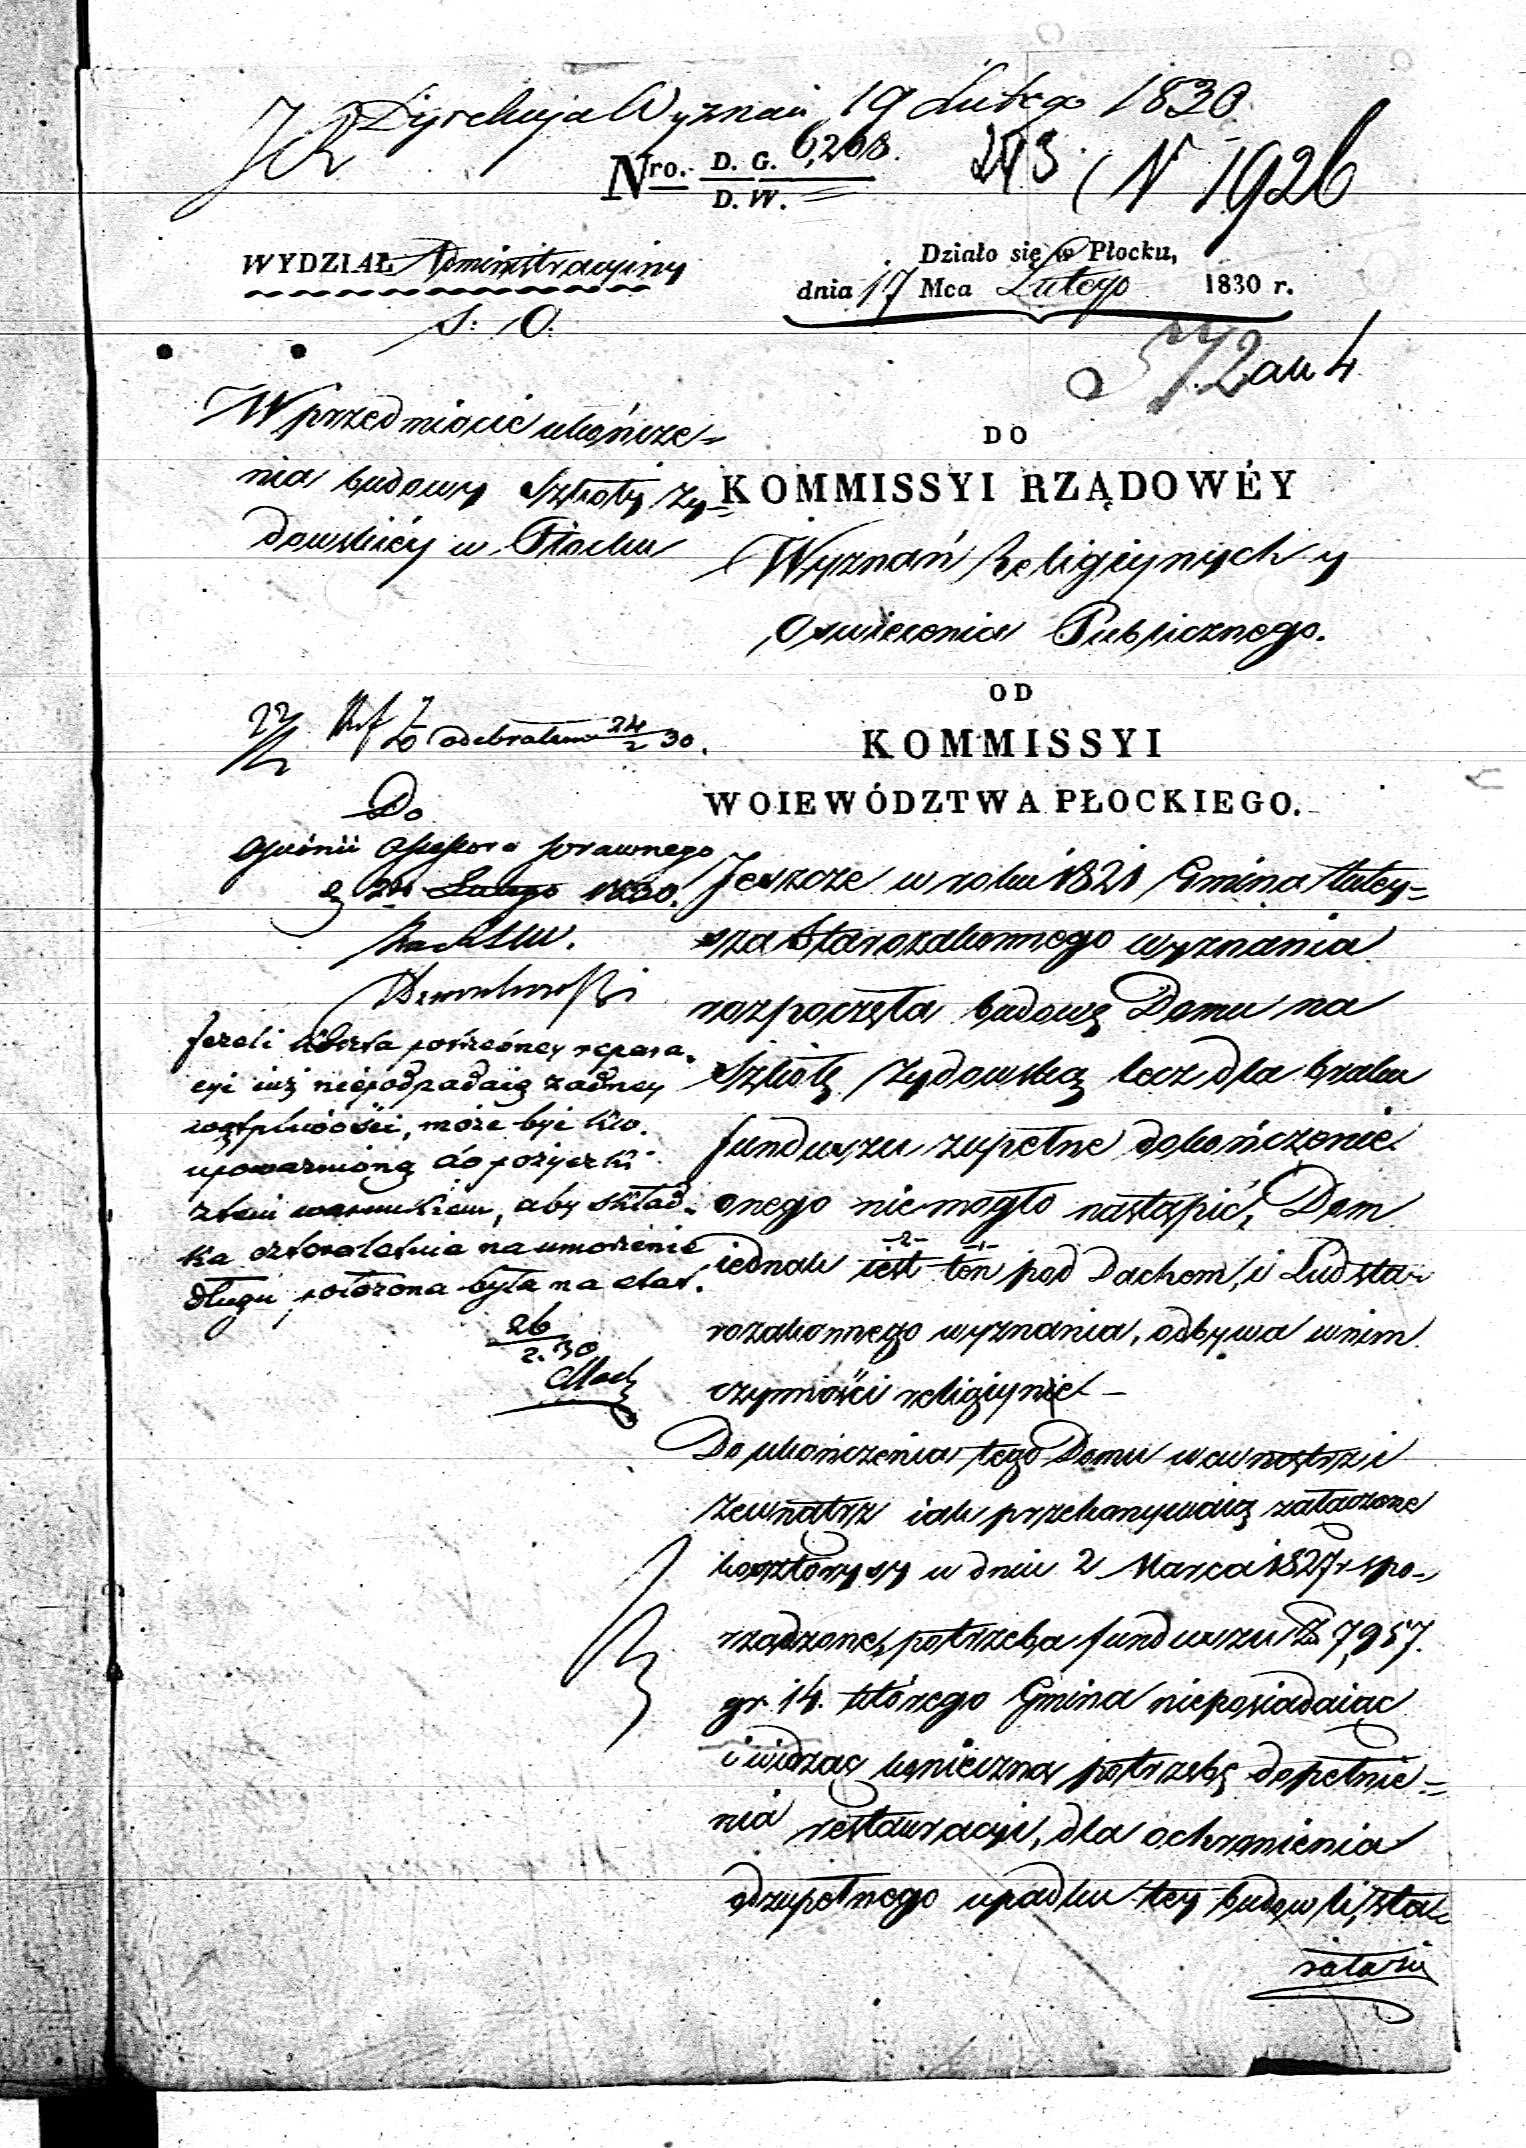 Dyrekcyja Wyznań 19 Lutego 1830.
Nro. D. G. 6,268. 273 N 1926
D. W.
WYDZIAŁ Administracyiny
Działo się w Płocku,
dnia 17 Mca Lutego 1830 r.
S: O:
572 ak 4
W przedmiocie ukończe=
nia budowy Szkoły Ży=
dowskiéy w Płocku
DO
KOMMISSYI RZĄDOWÉY
Wyznań Religiynych y
Oswiecenia Publicznego.
OD
KOMMISSYI
WOIEWÓDZTWA PŁOCKIEGO.
odebrałem 24/2 30.
Do
Opinii Assessora prawnego
d 24 Lutego 1830.
Jeżeli koszta potrzebney repara=
cyi iuż niepodpadaią żadney
wątpliwości, może być Kw.
upoważnioną do pożyczki
z tem warunkiem, aby skład=
ka czteroletnia na umorzenie
długu, położona była na etat.
26/2. 30
Jeszcze w roku 1821 Gmina tutey=
sza Starozakonnego wyznania
rozpoczęła budowę Domu na
Szkołę Żydowską lecz dla braku
funduszu zupełne dokończenie
onego niemogło nastąpić, Dom
iednak iest ten pod Dachem, i Lud sta=
rozakonnego wyznania, odbywa wnim
czynności religiyne –
Do ukończenia tego Domu wewnątrz i
zewnątrz iak przekonywaią załączone
kosztorysy w dniu 2 Marca 1827 r spo=
rządzone, potrzeba funduszu Zł 7,957.
gr. 14. którego Gmina nieposiadaiąc
i widząc konieczną potrzebę dopełnie=
nia restauracyi, dla ochronienia
odzupełnego upadku tey budowli, sta=
rała się